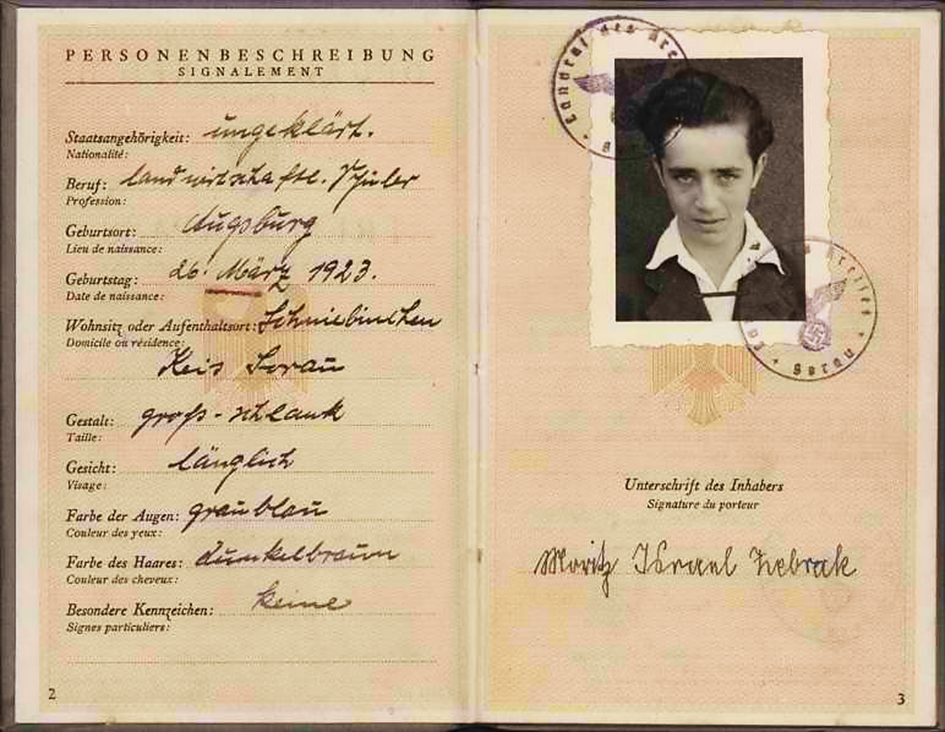 PERSONENBESCHREIBUNG
SIGNALEMENT
Staatsangehörigkeit: ungeklärt.
Nationalité:
Beruf: landwirtschaftl. Schüler
Profession:
Geburtsort: Augsburg
Lieu de naissance:
Geburtstag: 26. März 1923.
Date de naissance:
Wohnsitz oder Aufenthaltsort: Schniebinchen
Domicile ou résidence:
Kreis Sorau
Gestalt: groß-schlank
Taille:
Gesicht: länglich
Visage:
Farbe der Augen: graublau
Couleur des yeux:
Farbe des Haares: dunkelbraun
Couleur des cheveux:
Besondere Kennzeichen: keine
Signes particuliers:
2
Landrat des Kre
Kreises
Sorau
Unterschrift des Inhabers
Signature du porteur
Moritz Israel Zebrak
3